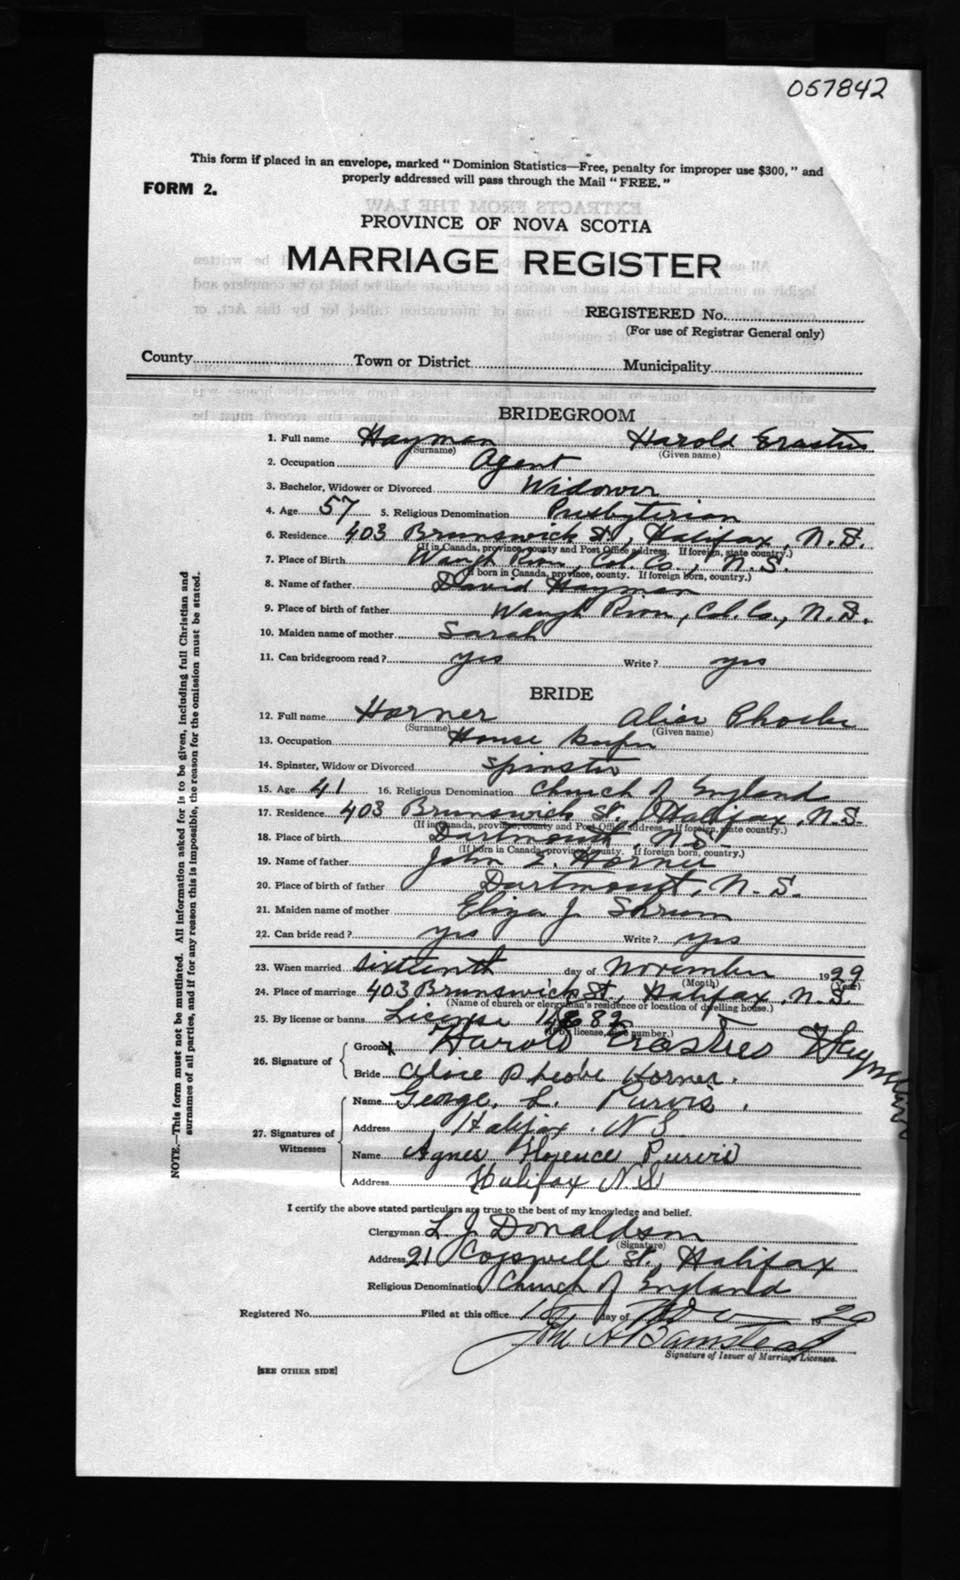 057842
This form if placed in an envelope, marked "Dominion Statistics—Free, penalty for improper use $300," and
properly addressed will pass through the Mail "FREE."
FORM 2.
PROVINCE OF NOVA SCOTIA
MARRIAGE REGISTER
REGISTERED No.
(For use of Registrar General only)
County Town or District Municipality
BRIDEGROOM
1. Full name Hayman Harold Erastus
(Surname) (Given name)
2. Occupation Agent
3. Bachelor, Widower or Divorced Widower
4. Age 57 5. Religious Denomination Presbyterian
6. Residence 403 Brunswick St., Halifax, N.S.
(If in Canada, province, county and Post Office address. If foreign, state country.)
7. Place of Birth Waugh River, Col. Co., N.S.
(If born in Canada, province, county. If foreign born, country.)
8. Name of father David Hayman
9. Place of birth of father Waugh River, Col. Co., N.S.
10. Maiden name of mother Sarah
11. Can bridegroom read? yes Write? yes
BRIDE
12. Full name Horner Alice Phoebe
(Surname) (Given name)
13. Occupation House keeper
14. Spinster, Widow or Divorced Spinster
15. Age 41 16. Religious Denomination Church of England
17. Residence 403 Brunswick St., Halifax, N.S.
(If in Canada, province, county and Post Office address. If foreign, state country.)
18. Place of birth Dartmouth, N.S.
(If born in Canada, province, county. If foreign born, country.)
19. Name of father John E. Horner
20. Place of birth of father Dartmouth, N.S.
21. Maiden name of mother Eliza J. Shrum
22. Can bride read? yes Write? yes
23. When married sixteenth day of November 1929
(Month) (Year)
24. Place of marriage 403 Brunswick St., Halifax, N.S.
(Name of church or clergyman's residence or location of dwelling house.)
25. By license or banns License
(If by license, give number.)
26. Signature of Groom Harold Erasties Hayman
Bride Alice Pheobe Horner.
27. Signatures of Witnesses
Name George. L. Purvis.
Address Halifax. N S
Name Agnes Florence Purvis
Address Halifax N S
I certify the above stated particulars are true to the best of my knowledge and belief.
Clergyman L. J. Donaldson
(Signature)
Address 21 Cogswell St., Halifax
Religious Denomination Church of England
Registered No. Filed at this office day of Nov 19
Signature of Issuer of Marriage Licenses.
[SEE OTHER SIDE]
NOTE.—This form must not be mutilated. All information asked for is to be given, including full Christian and
surnames of all parties, and if for any reason this is impossible, the reason for the omission must be stated.